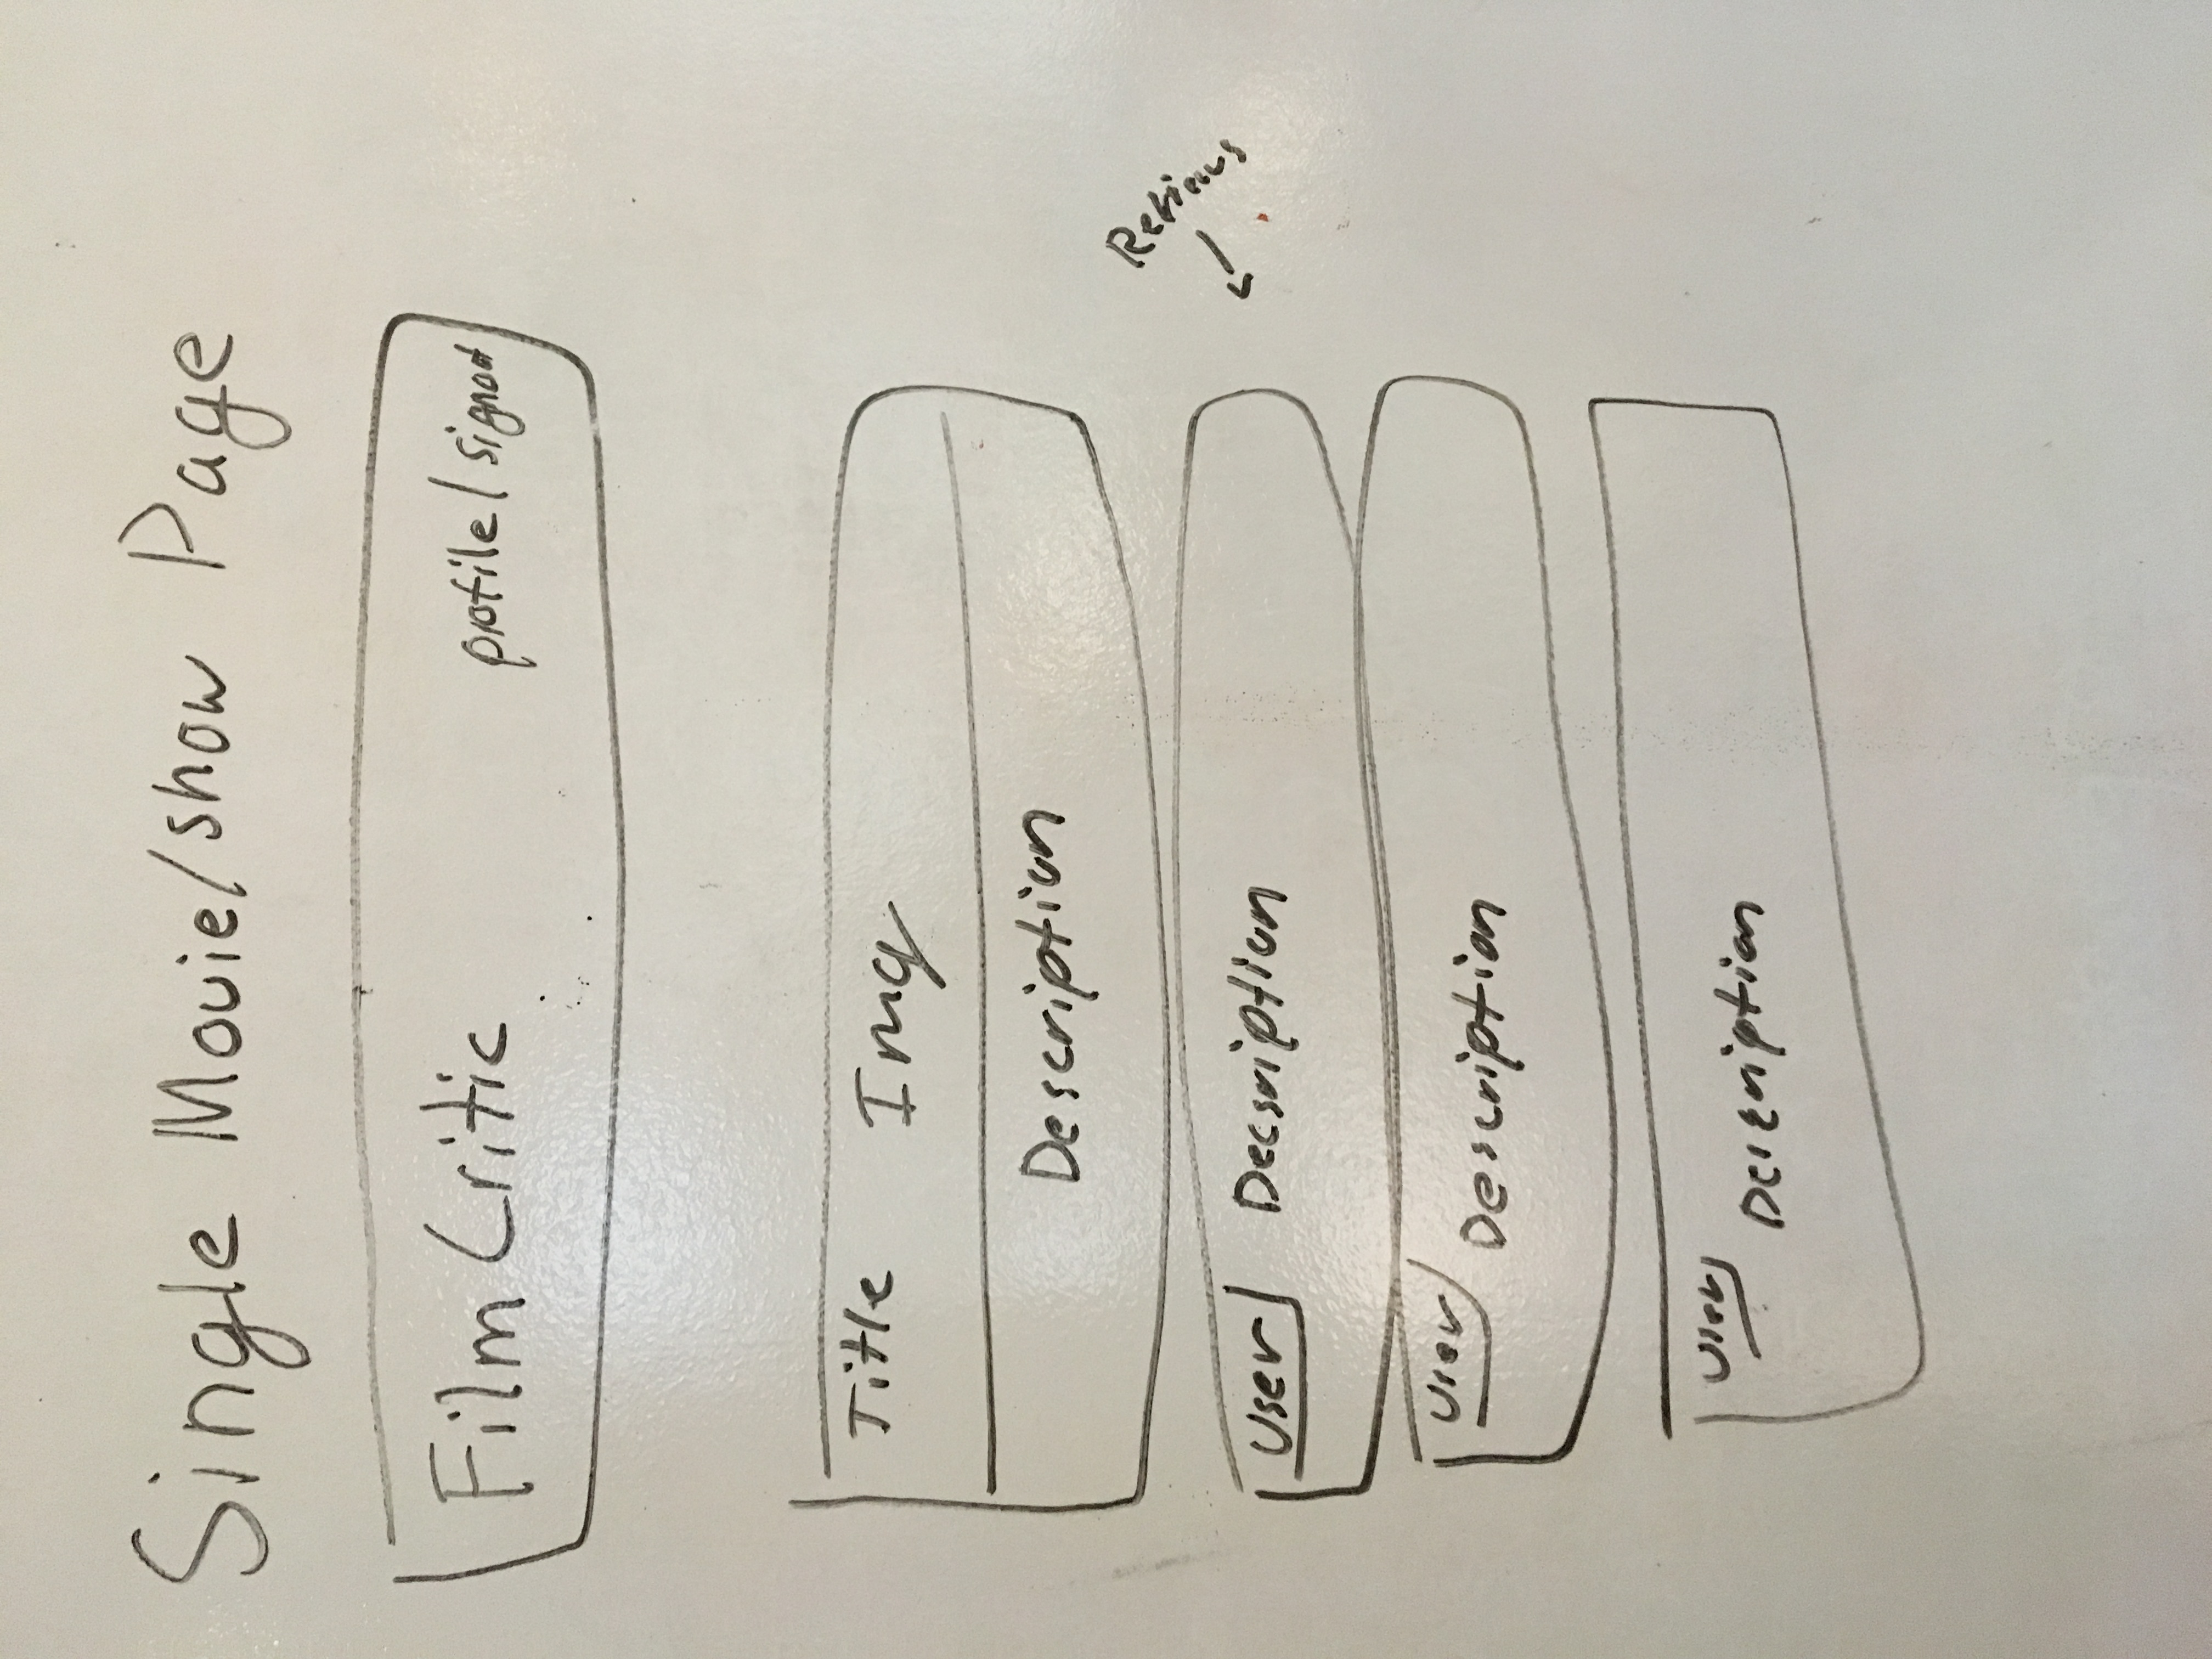 Single Movie/show Page
Film Critic profile / signout
Title Img
Description
Reviews
User Decsription
User Description
User Description